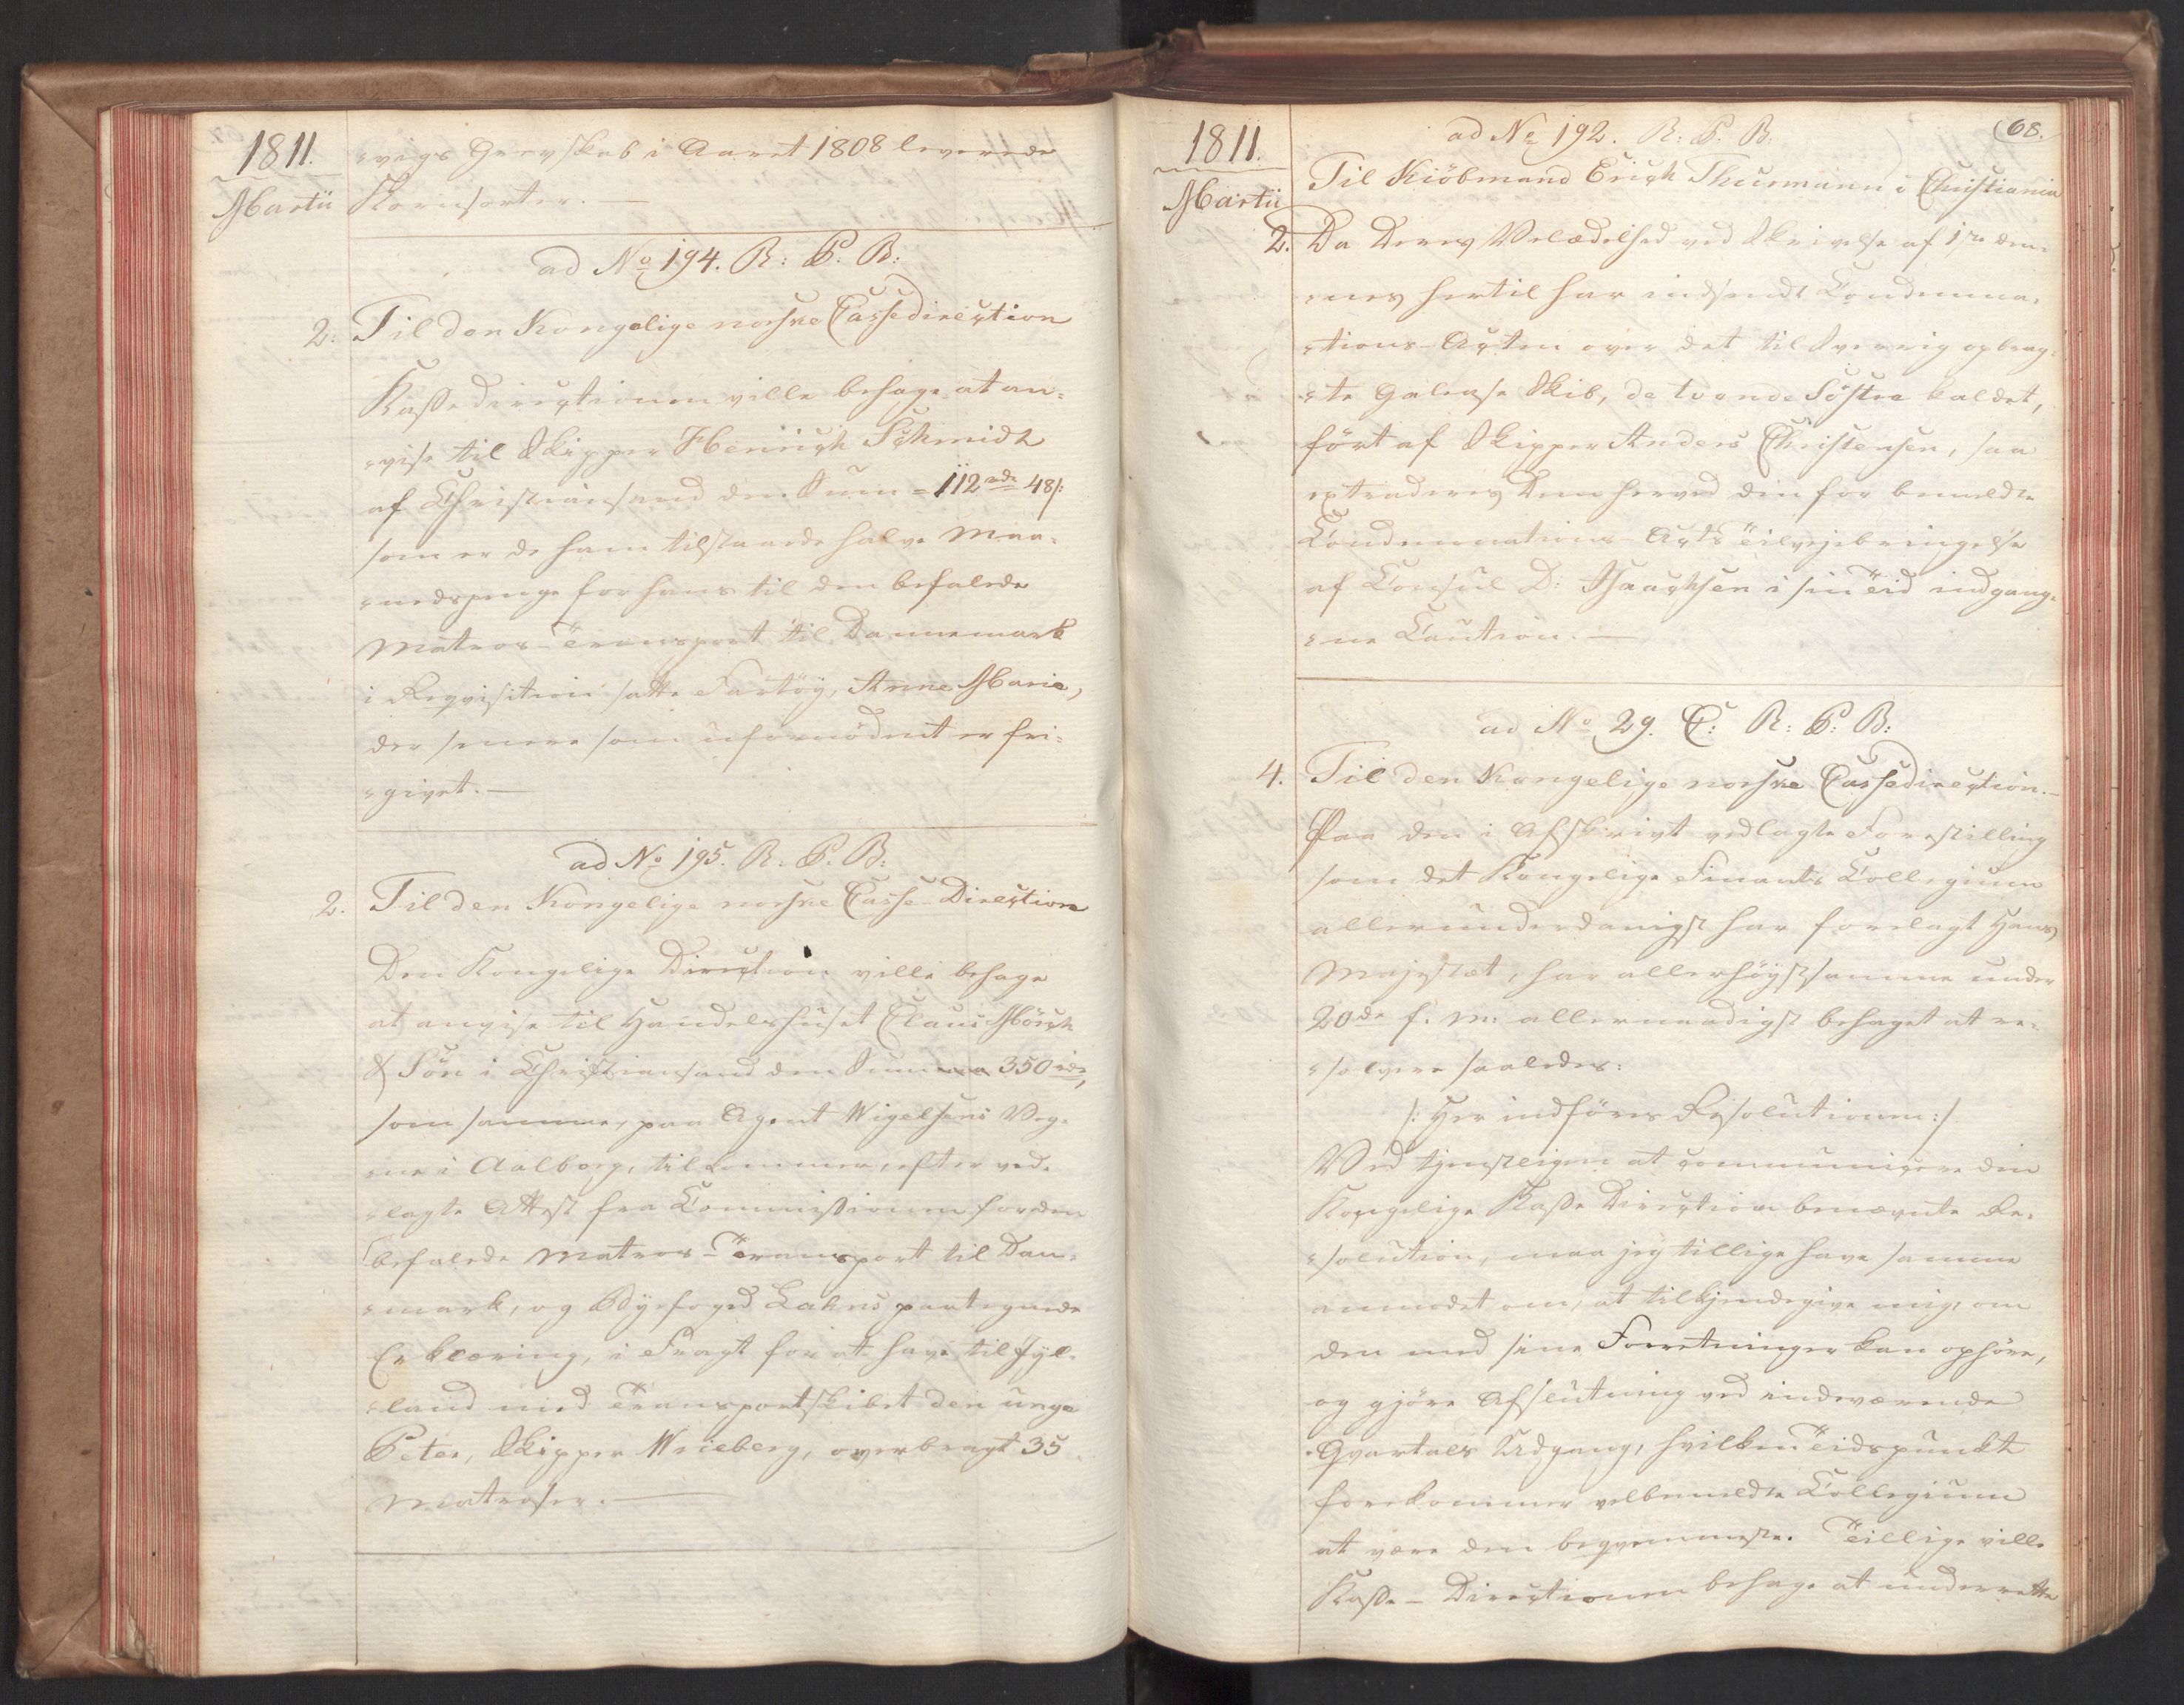 1811.
Martii
-vigs Grevskab i Aaret 1808 leverede
Kornsorter. —
ad No 194. R: P. B:
2. Til den Kongelige norske Cassedirection
Kassedirectionen ville behage at an-
-vise til Skipper Henrich Schmidt
af Christiansand den Sum = 112 rdr 48 s:
som er de ham tilstaaede halve Maa-
-nedspenge for hans til den befalede
Matros-Transport til Dannemark
i Reqvisition satte Fartöy, Anne Marie,
der senere som ufornödent er fri-
-givet. —
ad No 195. R: P. B:
2. Til den Kongelige norske Casse-Direction
Den Kongelige Direction ville behage
at anvise til Handelshuset Claus Mörch
& Sön i Christiansand den Summa 350 rdr,
som samme, paa Agent Wigelsens Veg-
-ne i Aalborg, tilkommer, efter ved-
-lagte Attest fra Commissionen for den
befalede Matros-Transport til Dan-
-mark, og Byefoged Lahns paategnede
Erklæring, i Fragt for at have til Jyl-
-land med Transportskibet den unge
Peter, Skipper Wrieberg, overbragt 35
Matroser. —
68.
1811.
Martii
ad No 192. R: P. B:
Til Kiöbmand Erich Thurmann i Christiania
2. Da Deres Velædelhed ved Skrivelse af 1ste den-
-nes hertil har indsendt Condemna-
-tions-Acten over det til Sverrig opbrag-
-te Galease Skib, de tvende Söstre kaldet,
fört af Skipper Anders Christensen, saa
extraderes Dem herved den for bemeldte
Condemnations-Acts Tilvejebringelse
af Consul D: Isaachsen i sin Tid indgang-
-ne Caution. —
ad No 29. C: R: P: B:
4. Til den Kongelige norske Cassedirection. —
Paa den i Afskrivt vedlagte Forestilling
som det Kongelige Finants Collegium
allerunderdanigst har forelagt Hans
Majestæt, har allerhöystsamme under
20de f. M: allernaadigst behaget at re-
-solvere saaledes:
/: Her indföres Resolutionen :/
Ved tjenstligen at communicere den
Kongelige Kasse Direction benævnte Re-
-solution, maa jeg tillige have samme
anmodet om, at tilkjendegive mig, om
den med sine Forretninger kan ophöre,
og gjöre Afslutning ved indeværende
Qvartals Udgang, hvilken Tidspunkt
forekommer velbemeldte Collegium
at være den beqvemmeste. Tillige ville
Kasse-Directionen behage at underrette